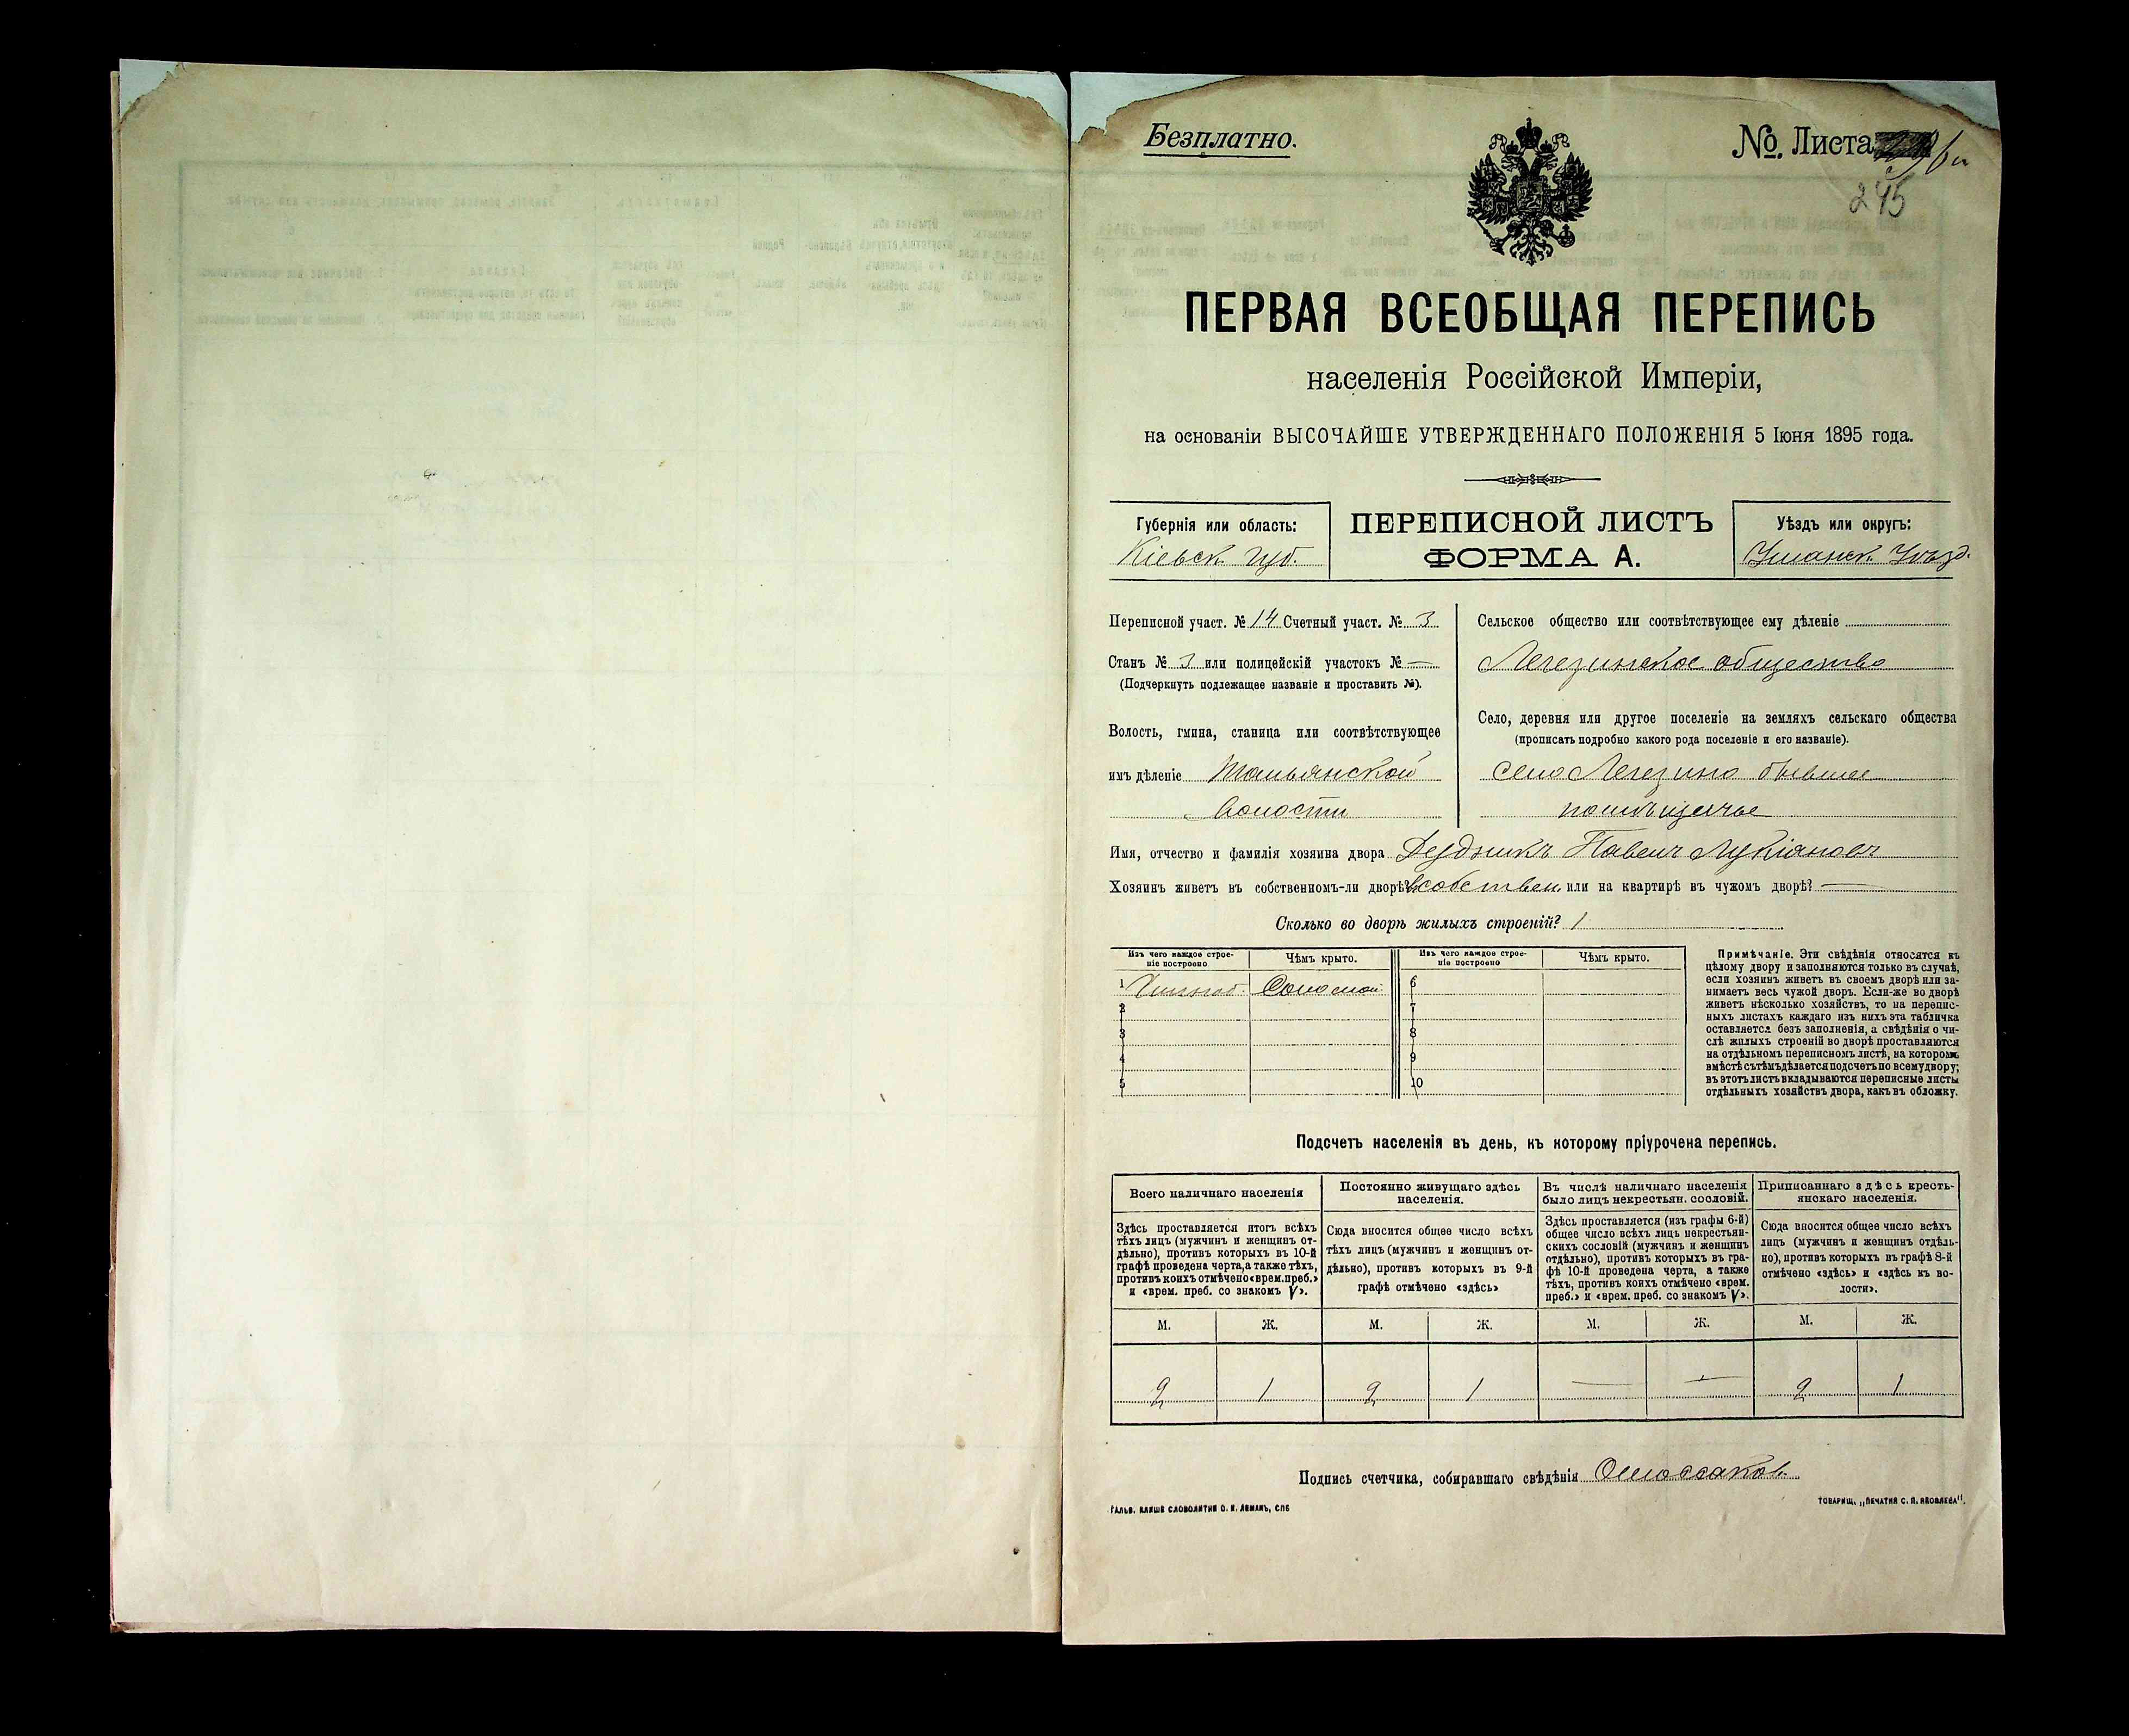 Безплатно.
№ Листа
245
ПЕРВАЯ ВСЕОБЩАЯ ПЕРЕПИСЬ
населенія Россійской Имперіи,
на основаніи ВЫСОЧАЙШЕ УТВЕРЖДЕННАГО ПОЛОЖЕНІЯ 5 Іюня 1895 года.
Губернія или область:
Кіевск. губ.
ПЕРЕПИСНОЙ ЛИСТЪ
ФОРМА А.
Уѣздъ или округъ:
Уманск. Уѣзд.
Переписной участ. № 14 Счетный участ. № 3
Станъ № 3 или полицейскій участокъ № —
(Подчеркнуть подлежащее названіе и проставить №).
Волость, гмина, станица или соотвѣтствующее
имъ дѣленіе Тальянской
волости
Сельское общество или соотвѣтствующее ему дѣленіе
Легезинское общество
Село, деревня или другое поселеніе на земляхъ сельскаго общества
(прописать подробно какого рода поселеніе и его названіе).
село Легезино бывшее
помѣщичье
Имя, отчество и фамилія хозяина двора Дудникъ Павелъ Лукіановъ
Хозяинъ живетъ въ собственномъ-ли дворѣ? В собствен. или на квартирѣ въ чужомъ дворѣ? —
Сколько во дворѣ жилыхъ строеній? 1
Изъ чего каждое строе-
ніе построено
Чѣмъ крыто.
Изъ чего каждое строе-
ніе построено
Чѣмъ крыто.
1 Соломой 6
2 7
3 8
4 9
5 10
Примѣчаніе. Эти свѣдѣнія относятся къ
цѣлому двору и заполняются только въ случаѣ,
если хозяинъ живетъ въ своемъ дворѣ или за-
нимаетъ весь чужой дворъ. Если-же во дворѣ
живетъ нѣсколько хозяйствъ, то на перепис-
ныхъ листахъ каждаго изъ нихъ эта табличка
оставляется безъ заполненія, а свѣдѣнія о чи-
слѣ жилыхъ строеній во дворѣ проставляются
на отдѣльномъ переписномъ листѣ, на которомъ
вмѣстѣ съ тѣмъ дѣлается подсчетъ по всему двору;
въ этотъ листъ вкладываются переписные листы
отдѣльныхъ хозяйствъ двора, какъ въ обложку.
Подсчетъ населенія въ день, къ которому пріурочена перепись.
Всего наличнаго населенія
Здѣсь проставляется итогъ всѣхъ
тѣхъ лицъ (мужчинъ и женщинъ от-
дѣльно), противъ которыхъ въ 10-й
графѣ проведена черта, а также тѣхъ,
противъ коихъ отмѣчено «врем. преб.»
и «врем. преб. со знакомъ V».
Постоянно живущаго здѣсь
населенія.
Сюда вносится общее число всѣхъ
тѣхъ лицъ (мужчинъ и женщинъ от-
дѣльно), противъ которыхъ въ 9-й
графѣ отмѣчено «здѣсь»
Въ числѣ наличнаго населенія
было лицъ некрестьян. сословій.
Здѣсь проставляется (изъ графы 6-й)
общее число всѣхъ лицъ некрестьян-
скихъ сословій (мужчинъ и женщинъ
отдѣльно), противъ которыхъ въ гра-
фѣ 10-й проведена черта, а также
тѣхъ, противъ коихъ отмѣчено «врем.
преб.» и «врем. преб. со знакомъ V».
Приписаннаго здѣсь кресть-
янскаго населенія.
Сюда вносится общее число всѣхъ
лицъ (мужчинъ и женщинъ отдѣль-
но), противъ которыхъ въ графѣ 8-й
отмѣчено «здѣсь» и «здѣсь къ во-
лости».
М. Ж. М. Ж. М. Ж. М. Ж.
2 1 2 1 — — 2 1
Подпись счетчика, собиравшаго свѣдѣнія
ГАЛЬВ. КЛИШЕ СЛОВОЛИТНИ О. И. ЛЕМАНЪ, СПБ
ТОВАРИЩ. „ПЕЧАТНЯ С. П. ЯКОВЛЕВА".